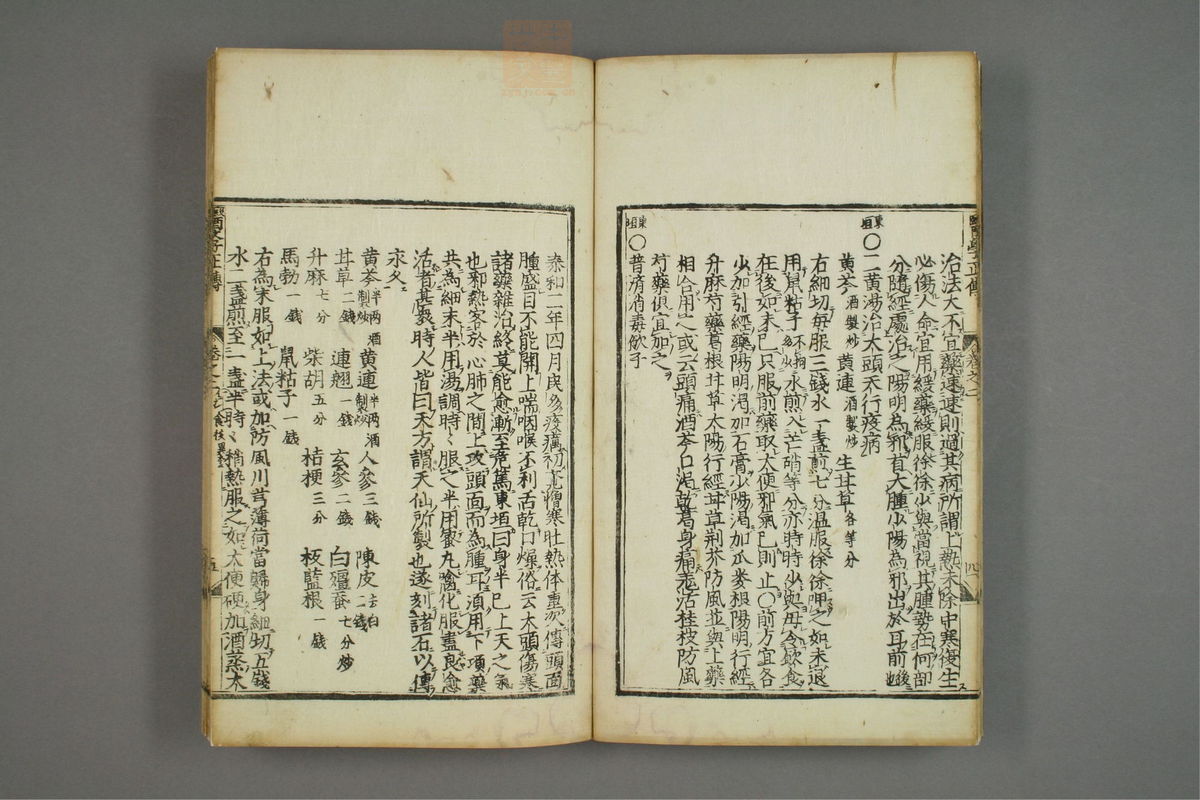 治法大不宜藥速速則過其病所謂上熱未除中寒復生
必傷人命宜用緩藥緩服徐徐少與當視其腫勢在何部
分隨經處治之陽明為邪首大腫少陽為邪出於耳前後也
東垣○二黃湯治大頭天行疫病
黄芩酒製炒 黄連酒製炒 生甘草各等分
右細切每服三錢水一盞煎七分温服徐徐呷之如未退
用鼠粘子不拘多少水煎入芒硝等分亦時時少與毋令飲食
在後如未已只服前藥取大便邪氣已則止○前方宜各
少加引經藥陽明渴加石膏少陽渴加瓜蔞根陽明行經
升麻芍藥葛根甘草太陽行經甘草荆芥防風並與上藥
相合用之或云頭痛酒芩口渴乾葛身痛羗活桂枝防風
芍藥俱宜加之
東垣○普濟消毒飲子
泰和二年四月民多疫癘初覺憎寒壯熱体重次傳頭面
腫盛目不能開上喘咽喉不利舌乾口燥俗云大頭傷寒
諸藥雜治終莫能愈漸至危篤東垣曰身半已上天之氣
也邪熱客於心肺之間上攻頭面而為腫耳須用下項藥
共為細末半用湯調時〻服之半用蜜丸噙化服盡良愈
活者甚衆時人皆曰天方謂天仙所製也遂刻諸石以傳
永久
黄芩半兩酒製炒 黄連半兩酒製炒 人參三錢 陳皮去白二錢
甘草二錢 連翹一錢 玄參二錢 白殭蚕七分炒
升麻七分 柴胡五分 桔梗三分 板藍根一錢
馬勃一錢 鼠粘子一錢
右為末服如上法或加防風川芎薄荷當歸身細切五錢
水二盞煎至一盞半時〻稍熱服之如大便硬加酒蒸大